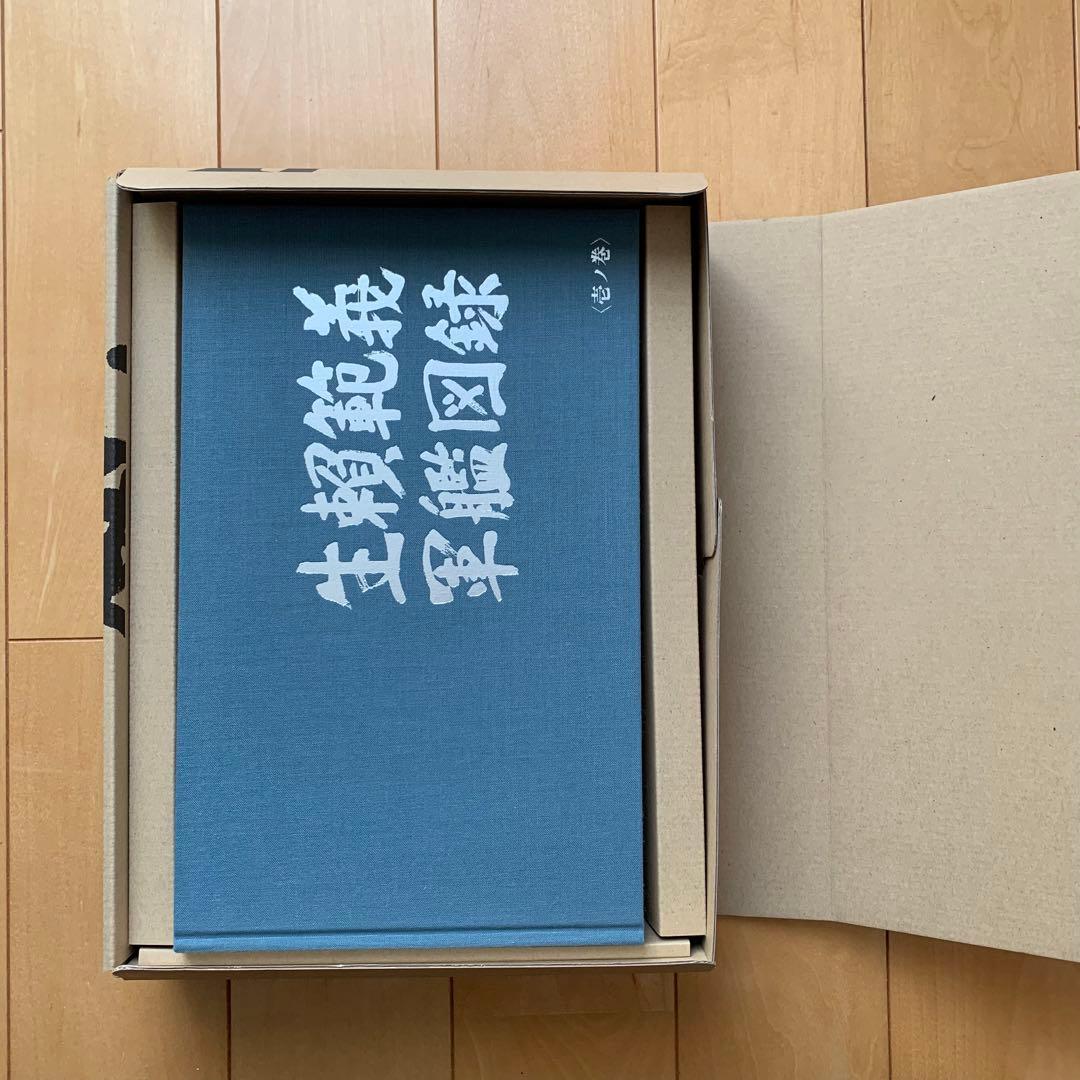 生賴範義
軍艦図録
〈壱ノ巻〉